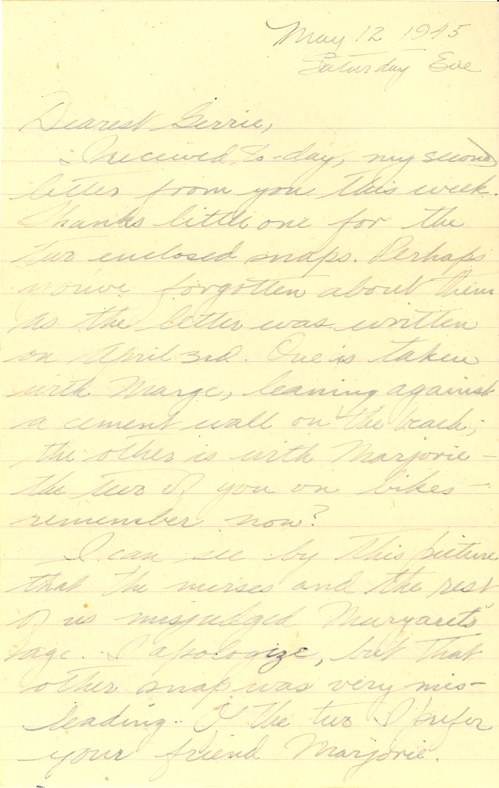 May 12 1945
Saturday Eve
Dearest Gerrie,
I received, to-day, my second
letter from you this week.
Thanks little one for the
two enclosed snaps. Perhaps
you've forgotten about them
as the letter was written
on April 3rd. One is taken
with Marge, leaning against
a cement wall on the beach;
the other is with Marjorie -
the two of you on bikes -
remember now?
I can see by this picture
that the nurses and the rest
of us misjudged Margaret's
age. I apologize, but that
other snap was very mis-
leading. Of the two I prefer
your friend Marjorie.